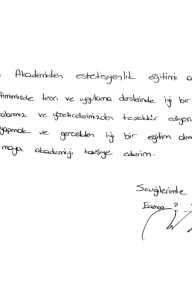 Akademiden estetisyenlik eğitimi a
timimizde teori ve uygulama derslerinde iyi bir
alarımız ve yöneticilerimizden teşekkür ediyoru
yapmak ve gerçekten iyi bir eğitim alma
maya akademiyi tavsiye ederim.
Sevgilerimle